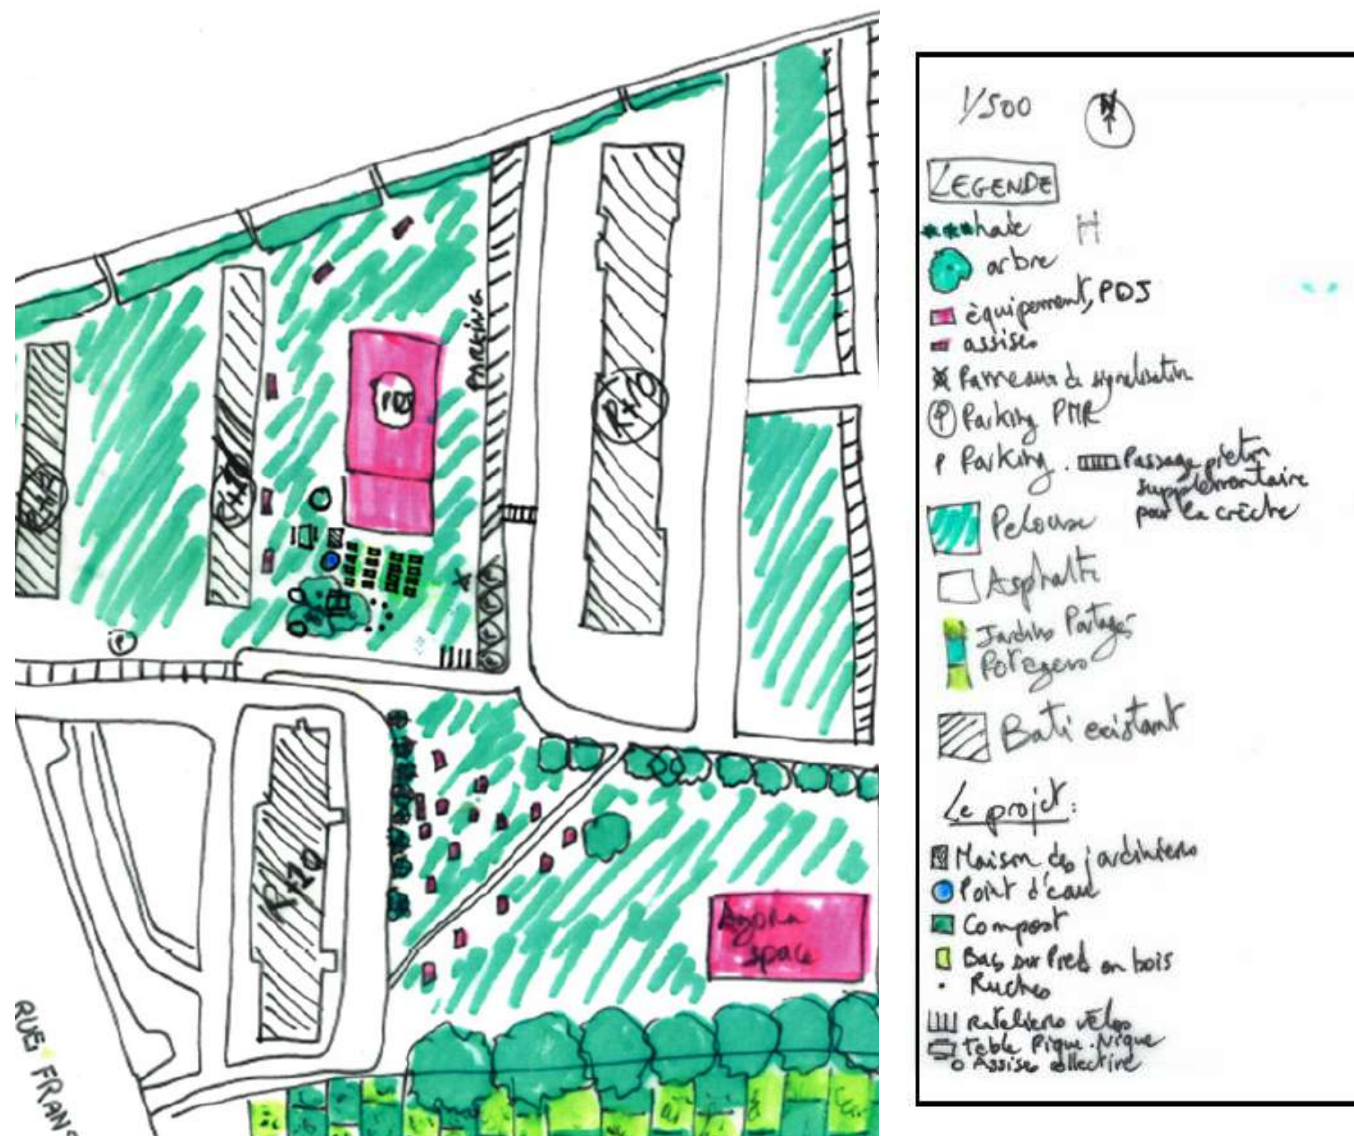 PARKING
PDS
R+10
R+10
R+10
Agora
space
RUE FRANC
1/500
N
LEGENDE
haie H
arbre
équipement, PDS
assises
Panneaux de signalisation
P Parking PMR
P Parking. Passage piéton
supplémentaire
pour la crèche
Pelouse
Asphalte
Jardins Partagés
Potagers
Bati existant
Le projet:
Maison des jardiniers
Point d'eau
Compost
Bacs sur Pied en bois
Ruches
rateliers vélos
Table Pique.Nique
Assise collective